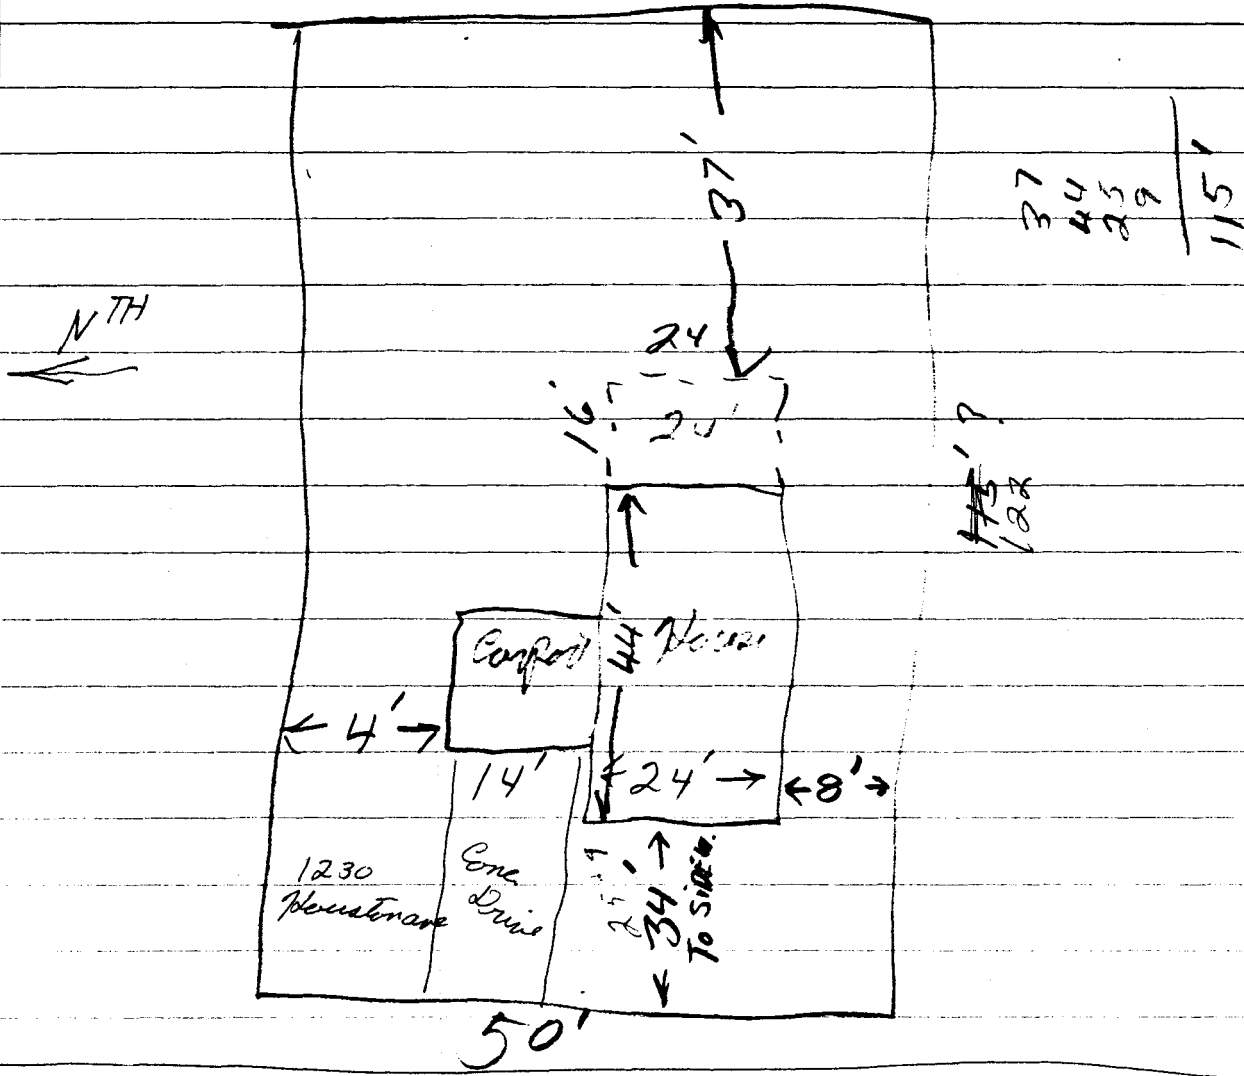 37'
37
44
25
9
115'
N TH
24
16'
24'
115' ?
122
Carport
44'
House
4'
14'
24'
8'
1230
Houston ave
Conc
Drive
25 9
34'
To SIDEW.
50'